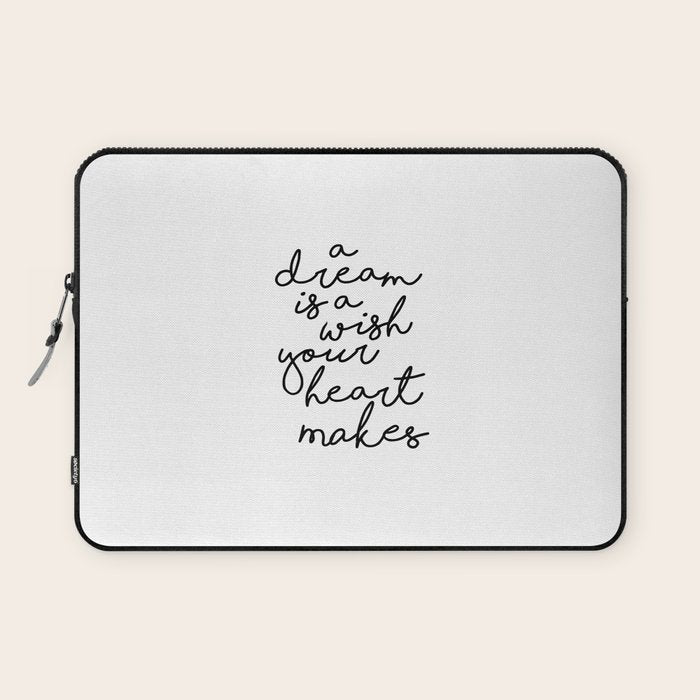 a
dream
is a
wish
your
heart
makes
society6